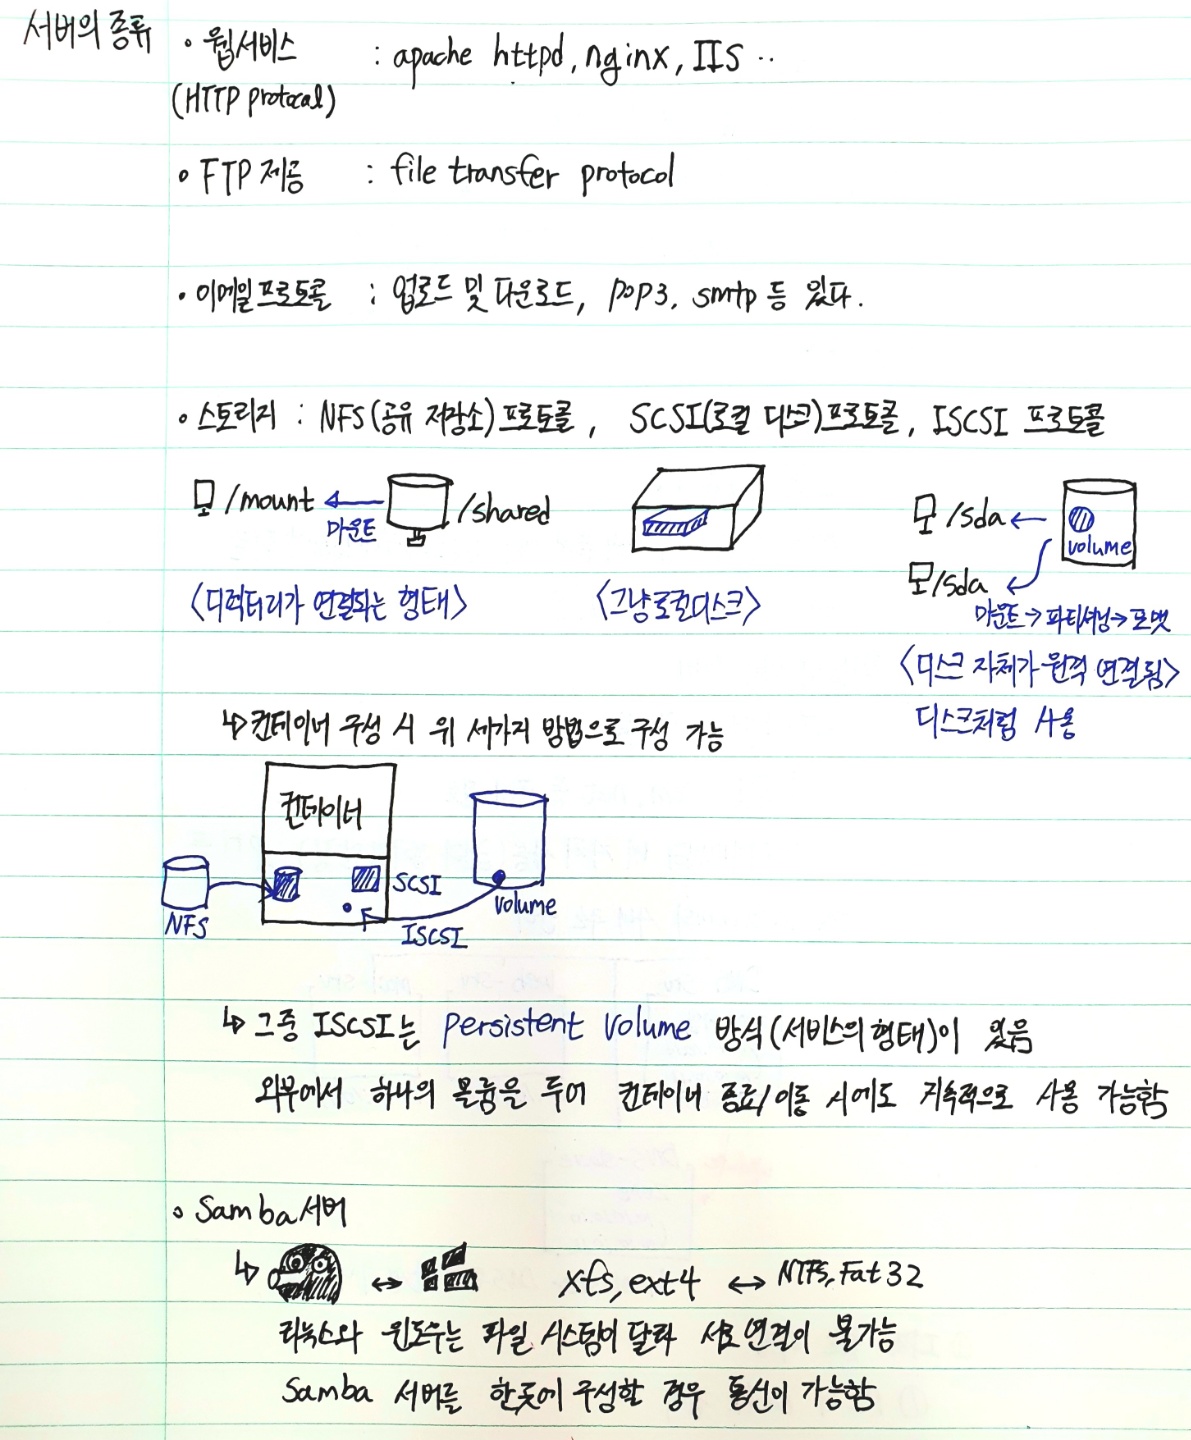 서버의 종류
• 웹서비스 : apache httpd, nginx, IIS ..
(HTTP protocal)
• FTP 제공 : file transfer protocol
• 이메일 프로토콜 : 업로드 및 다운로드, pop3, smtp 등 있다.
• 스토리지 : NFS(공유 저장소) 프로토콜, SCSI(로컬 디스크)프로토콜, ISCSI 프로토콜
/mount ← /shared
마운트
/sda ←
volume
/sda
마운트→파티셔닝→포맷
<디렉터리가 연결되는 형태>
<그냥 로컬디스크>
<디스크 자체가 원격 연결됨>
디스크처럼 사용
↳ 컨테이너 구성 시 위 세가지 방법으로 구성 가능
컨테이너
SCSI
NFS
volume
ISCSI
↳ 그중 ISCSI는 persistent volume 방식(서비스의 형태)이 있음
외부에서 하나의 볼륨을 두어 컨테이너 종료/이동 시에도 지속적으로 사용 가능함
• Samba 서버
↳ ↔ xfs, ext4 ↔ NTFS, Fat32
리눅스와 윈도우는 파일 시스템이 달라 서로 연결이 불가능
Samba 서버를 한곳에 구성할 경우 통신이 가능함